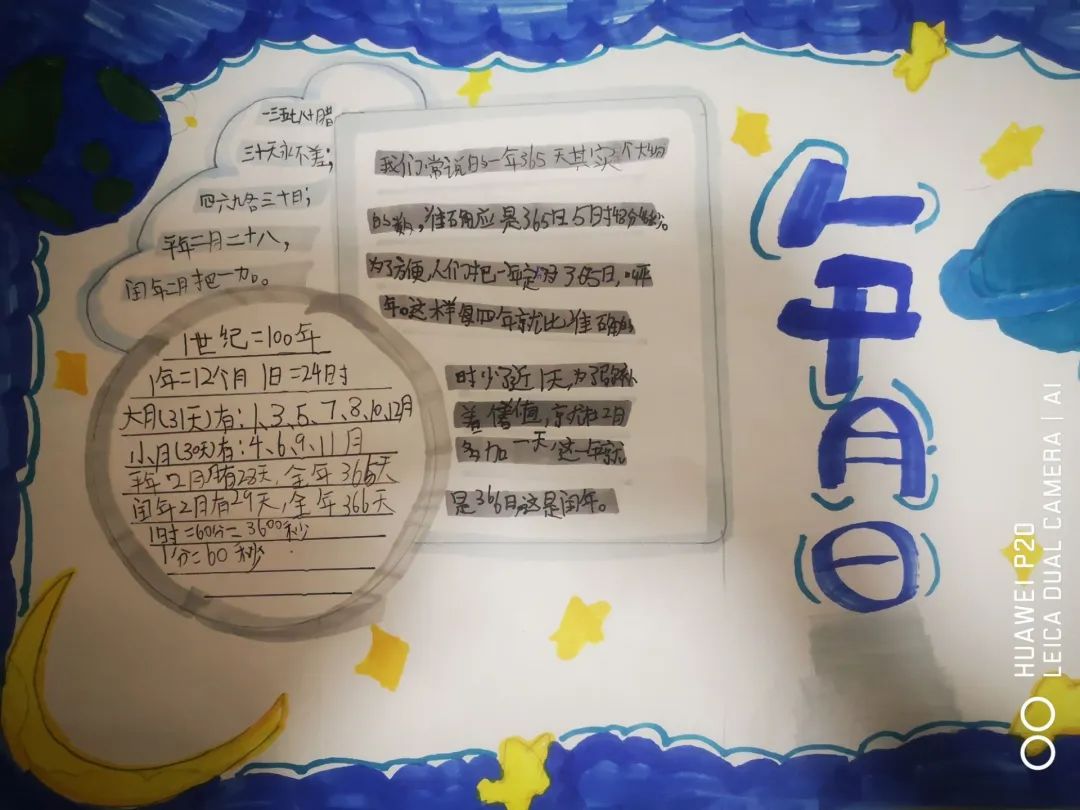 年月日
一三五七八十腊
三十天永不差;
四六九冬三十日;
平年二月二十八,
闰年二月把一加。
1世纪=100年
1年=12个月 1日=24时
大月(31天)有:1、3、5、7、8、10、12月
小月(30天)有:4、6、9、11月
平年2月有28天,全年365天
闰年2月有29天,全年366天
1时=60分=3600秒
1分=60秒
我们常说的一年365天其实 个大约
的数,准确应是365日5日时48分46秒。
为了方便,人们把一年定为365日,叫平
年。这样每四年就比准确的
时少了近1天,为了弥补
差值,就在2月
多加一天,这一年就
是366日,这是闰年。
HUAWEI P20
LEICA DUAL CAMERA | AI